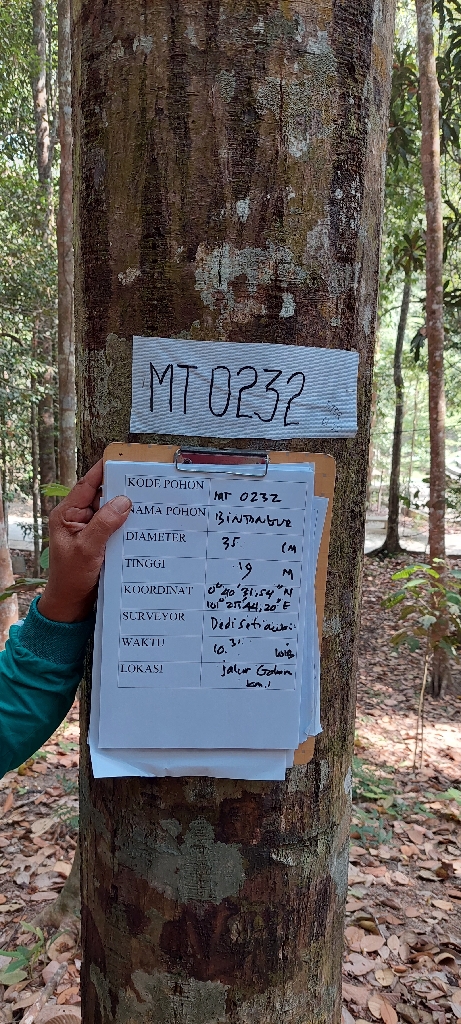 MT 0232
KODE POHON MT 0232
NAMA POHON BINTANGUR
DIAMETER 35 CM
TINGGI 19 M
KOORDINAT 0° 40' 31,54" N
101° 25' 44,20" E
SURVEYOR Dedi Setiawan
WAKTU 10.31 WIB
LOKASI Jalur Gajah
km.1